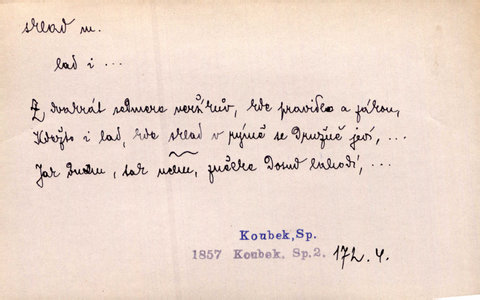 sklad m.
lad i ...
Z dvakrát sedmera veršův, kde pravidlo a zákon,
Kdežto i lad, kde sklad v rýmě se družně jeví, ...
Jak duchu, tak uchu, znělka Dosud lahodí, ...
Koubek, Sp.
1857 Koubek. Sp.2. 172. 4.